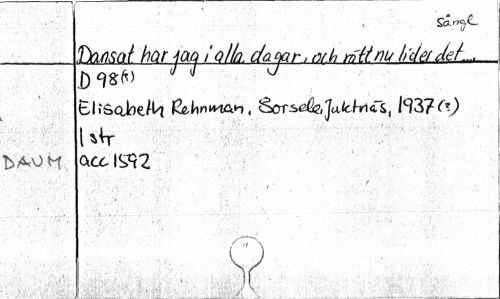 Sångl
Dansat har jag i alla dagar, och rätt nu lider det....
D 98(?)
Elisabeth Rehnman, Sorsele, Juktnäs, 1937(?)
1 str
DAUM acc 1592